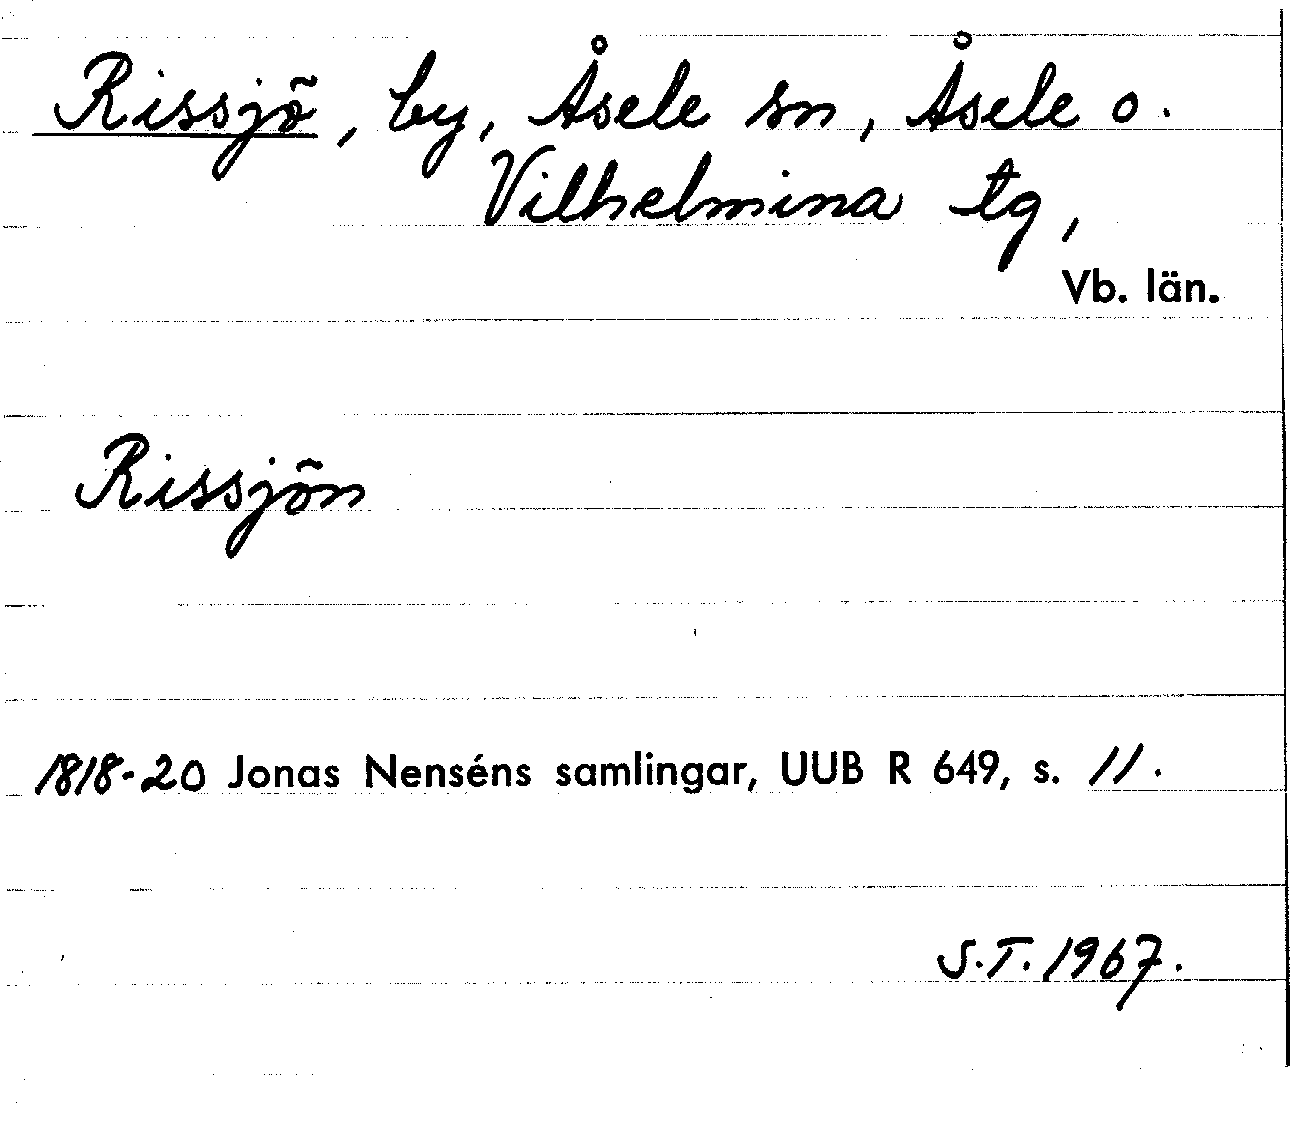 Rissjö, by, Åsele sn, Åsele o.
Vilhelmina tg,
Vb. län.
Rissjön
1818-20 Jonas Nenséns samlingar, UUB R 649, s. 11.
S.T. 1967.